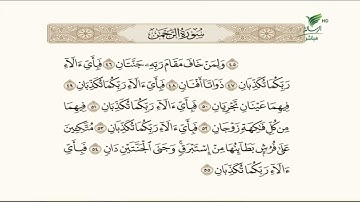 سورة الرحمن
HD
مباشر
٤٥ وَلِمَنْ خَافَ مَقَامَ رَبِّهِۦ جَنَّتَانِ ٤٦ فَبِأَيِّ ءَالَآءِ
رَبِّكُمَا تُكَذِّبَانِ ٤٧ ذَوَاتَآ أَفْنَانٍ ٤٨ فَبِأَيِّ ءَالَآءِ رَبِّكُمَا تُكَذِّبَانِ ٤٩
فِيهِمَا عَيْنَانِ تَجْرِيَانِ ٥٠ فَبِأَيِّ ءَالَآءِ رَبِّكُمَا تُكَذِّبَانِ ٥١ فِيهِمَا
مِن كُلِّ فَٰكِهَةٍ زَوْجَانِ ٥٢ فَبِأَيِّ ءَالَآءِ رَبِّكُمَا تُكَذِّبَانِ ٥٣ مُتَّكِـِٔينَ
عَلَىٰ فُرُشٍۭ بَطَآئِنُهَا مِنْ إِسْتَبْرَقٍ ۚ وَجَنَى ٱلْجَنَّتَيْنِ دَانٍ ٥٤ فَبِأَيِّ
ءَالَآءِ رَبِّكُمَا تُكَذِّبَانِ ٥٥